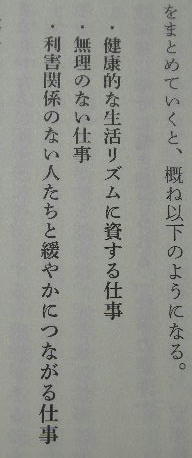 をまとめていくと、概ね以下のようになる。
・健康的な生活リズムに資する仕事
・無理のない仕事
・利害関係のない人たちと緩やかにつながる仕事